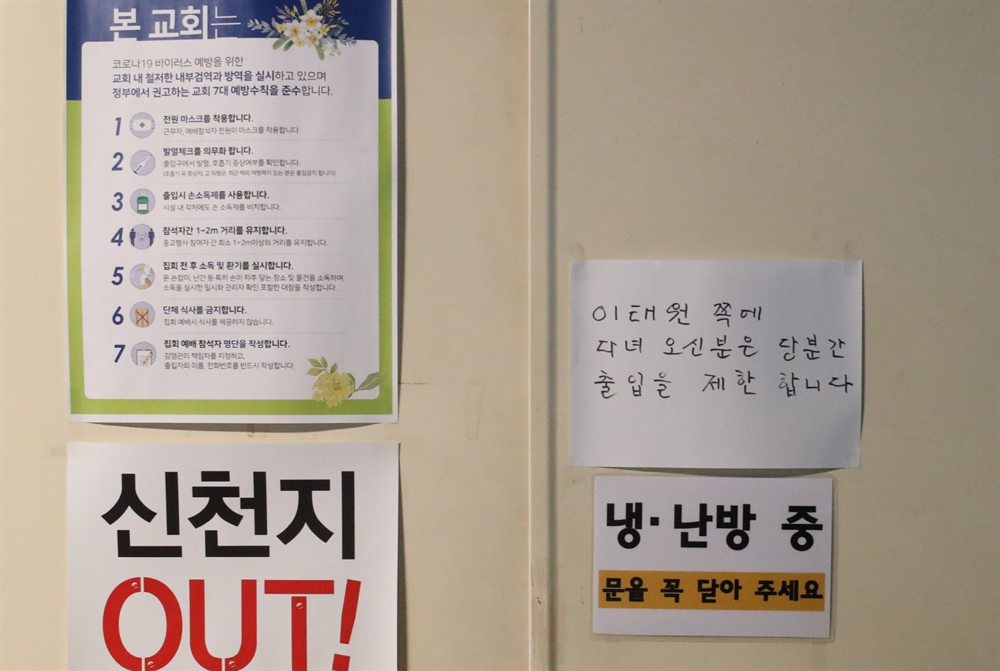 본 교회는
코로나19 바이러스 예방을 위한
교회 내 철저한 내부검역과 방역을 실시하고 있으며
정부에서 권고하는 교회 7대 예방수칙을 준수합니다.
1 전원 마스크를 착용합니다.
근무자, 예배참석자 전원이 마스크를 착용합니다.
2 발열체크를 의무화 합니다.
출입구에서 발열, 호흡기 증상여부를 확인합니다.
(호흡기 유 증상자, 고 위험군, 최근 해외 여행력이 있는 분은 출입금지 합니다)
3 출입시 손소독제를 사용합니다.
시설 내 각처에도 손 소독제를 비치합니다.
4 참석자간 1~2m 거리를 유지합니다.
종교행사 참여자 간 최소 1~2m이상의 거리를 유지합니다.
5 집회 전 후 소독 및 환기를 실시합니다.
문 손잡이, 난간 등 특히 손이 자주 닿는 장소 및 물건을 소독하며
소독을 실시한 일시와 관리자 확인 포함한 대장을 작성합니다.
6 단체 식사를 금지합니다.
집회 예배시 식사를 제공하지 않습니다.
7 집회 예배 참석자 명단을 작성합니다.
감염관리 책임자를 지정하고,
출입자의 이름, 전화번호를 반드시 작성합니다.
신천지
OUT!
이태원 쪽에
다녀 오신분은 당분간
출입을 제한 합니다
냉·난방 중
문을 꼭 닫아 주세요